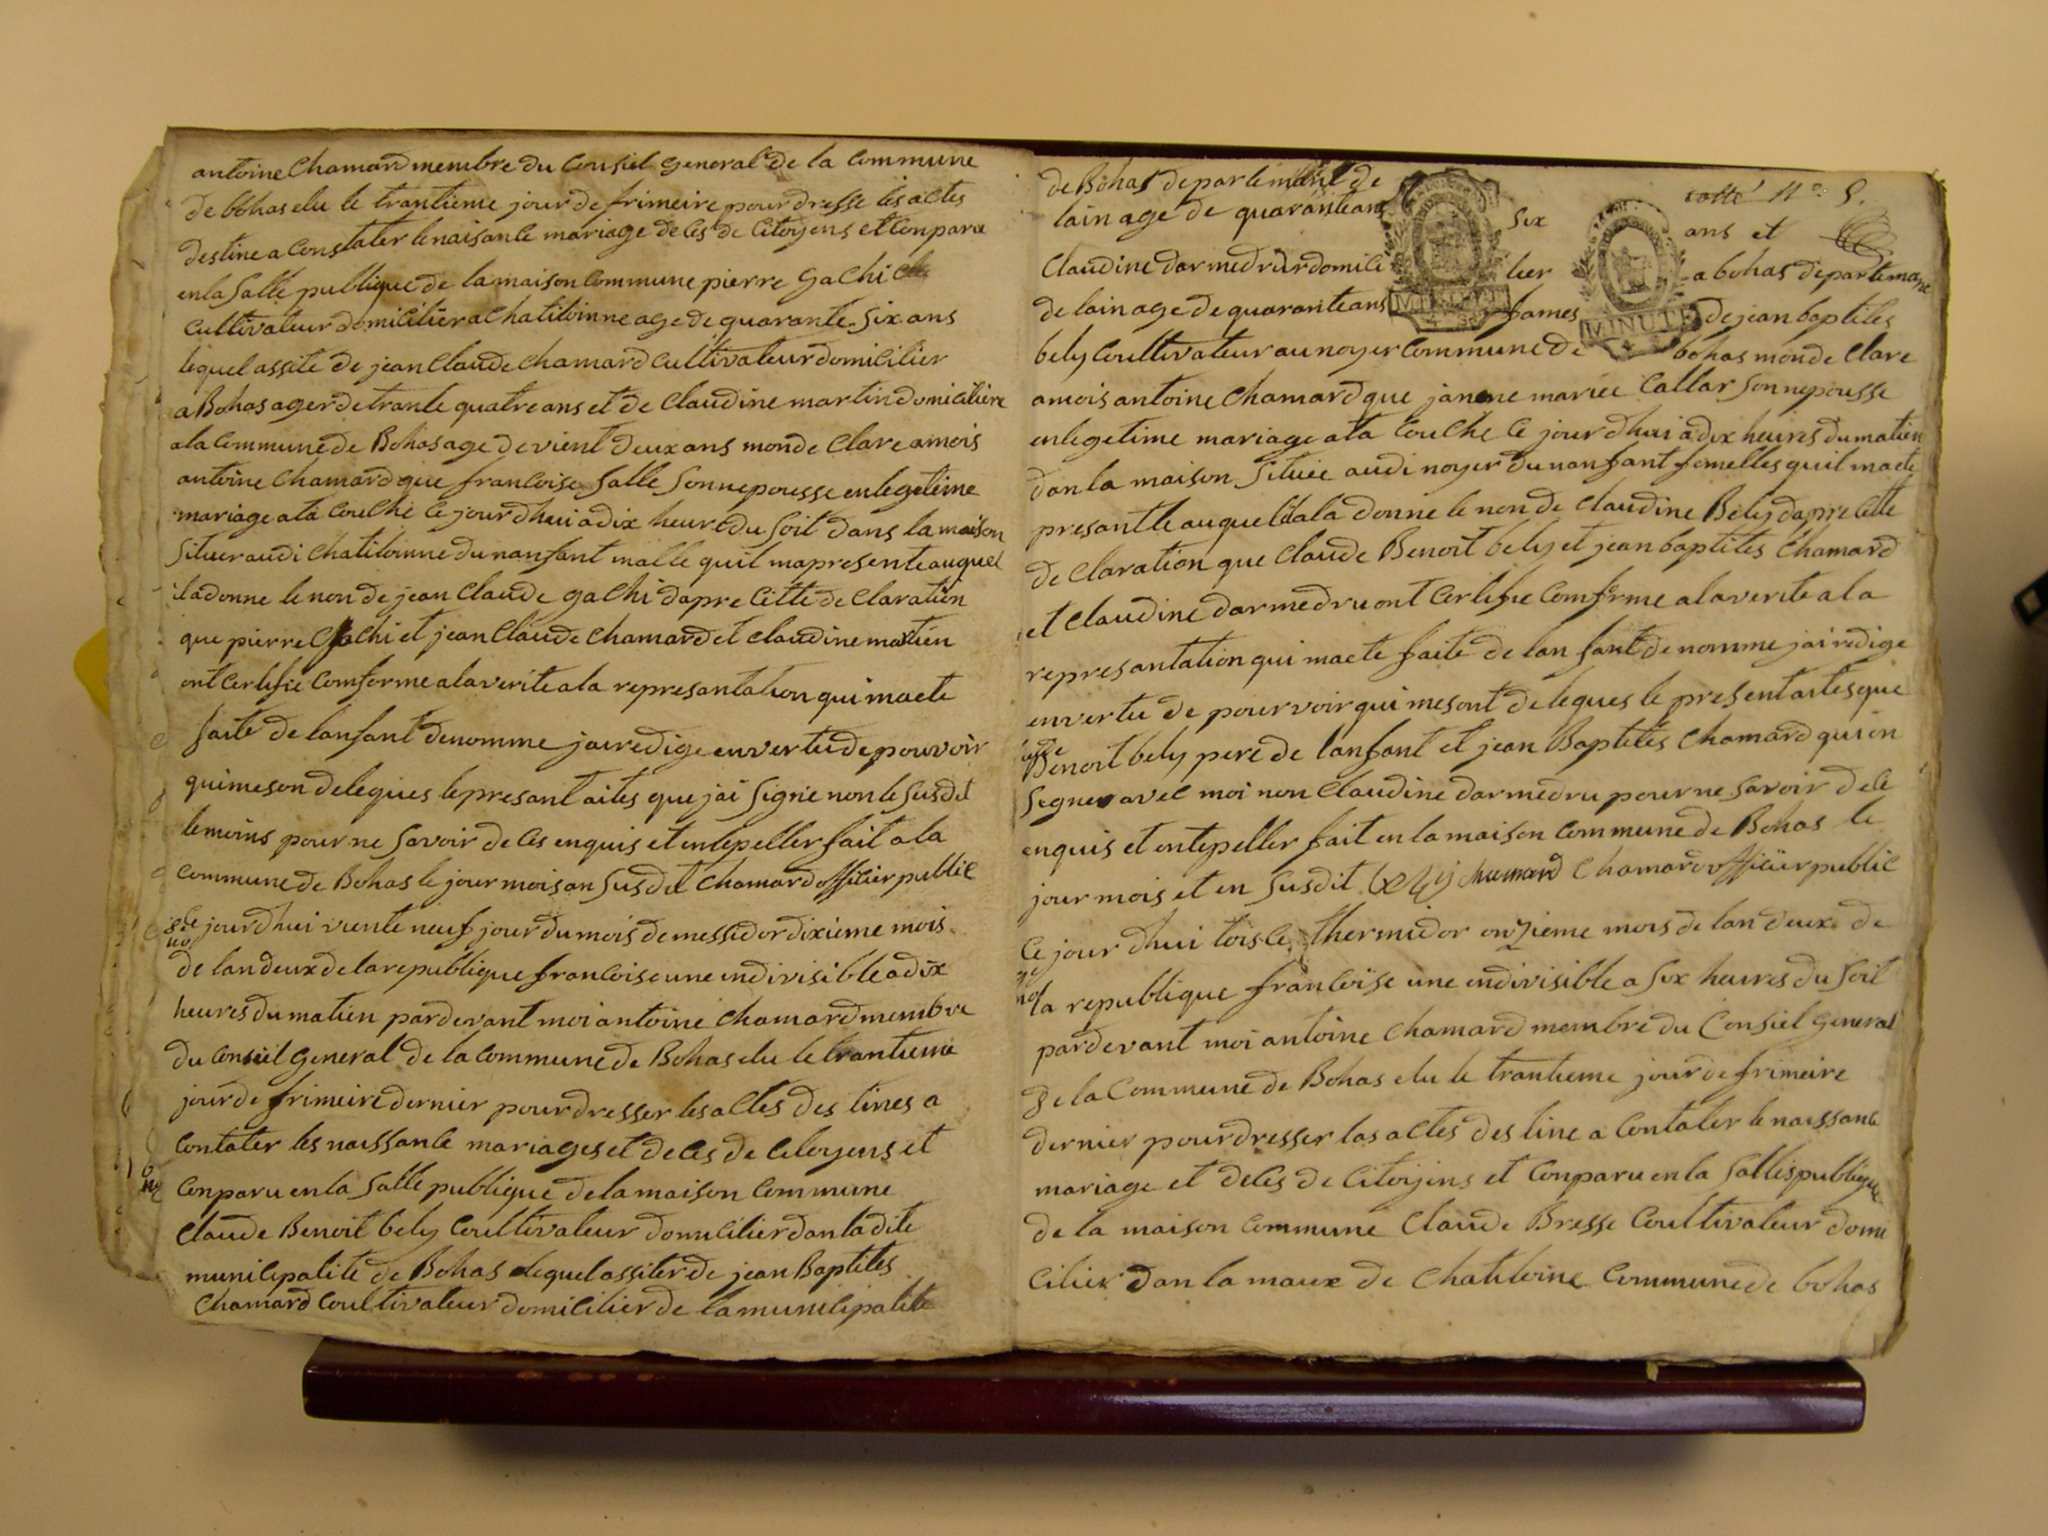 antoine Chamard membre du Consiel general de la Commune
de bohas elu le trantieme jour de frimeire pour dresse les actes
destine a Constater le naisance mariage deces de Citoyens et Conparu
en la Salle publique de la maison Commune pierre gachi
Cultivateur domicilier a Chatiloinne age de quarante Six ans
lequel assite de jean Claude Chamard Cultivateur domicilier
a Bohas ager de trante quatre ans et de Claudine martin domiciliere
a la Commune de Bohas age de vient deux ans mon de Clare a mois
antoine Chamard que francoise Salle Sonnepousse en legetime
mariage ata Couche Ce jour dhui a dix heure du Soit dans la maison
Situer audi Chatiloinne du nanfant malle quil ma presente auquel
il a donne le non de jean Claude gachi dapre Cette de Claration
que pierre gachi et jean Claude Chamard et Claudine martien
ont Certifie Comforme a la verite a la represantation qui maete
faite de lanfant denomme jai redige en vertu de pouvoir
qui me son delegues le presant aites que jai Signe non le Susdit
temoins pour ne Savoir de Ces enquis et entepeller fait a la
Commune de Bohas le jour mois an Susdit Chamard officier public
8 no
Ce jourdhui viente neuf jour du mois de messidor dixieme mois
de lan deux de la republique francoise une indivisible a dix
heures du matien pardevant moi antoine Chamard membre
du Consiel general de la Commune de Bohas elu le trantieme
jour de frimeire dernier pour dresser les actes des tines a
Contater les naissance mariages et deces de Citoyens et
Conparu en la Salle publique de la maison Commune
Claude Benoit bely Coultivateur domicilier dan ladite
municipalite de Bohas lequel assiter de jean Baptites
Chamard Coultivateur domicilier de la municipalite
cotté n° 5.
de Bohas departemant de
lain age de quarante ans Six ans et
Claudine darmedru domicilier a bohas departemant
de lain age de quarante ans fames de jean baptites
bely Coultivateur au noyer Commune de bohas mon de Clare
a mois antoine Chamard que janne mariee Callar Sonnepousse
en legetime mariage ata Couche Ce jour dhui a dix heures du matien
dan la maison Situee audi noyer du nanfant femelles quil maete
presantte auquel il a donne le non de Claudine Bely dapre Cette
de Claration que Claude Benoit bely et jean baptites Chamard
et Claudine darmedru ont Certifie Comforme a la verite a la
represantation qui maete faite de lan fant de nomme jai redige
en vertu de pourvoir qui me sont delegues le present aites que
Benoit bely pere de lanfant et jean Baptites Chamard qui on
Signer avec moi non Claudine darmedru pour ne Savoir de Ce
enquis et entepeller fait en la maison Commune de Bohas le
jour mois et en Susdit Bely chamard Chamard officier public
9 no
Ce jour dhui toisce thermidor onzieme mois de lan deux de
la republique francoise une indivisible a Six heures du Soit
pardevant moi antoine Chamard membre du Consiel general
de la Commune de Bohas elu le trantieme jour de frimeire
dernier pour dresser las actes des tine a Contater le naissance
mariage et deces de Citoyens et Conparu en la Salles publique
de la maison Commune Claude Bresse Coultivateur domi
Cilier dan la maux de Chatiloine Commune de bohas
MINUTE
MINUTE